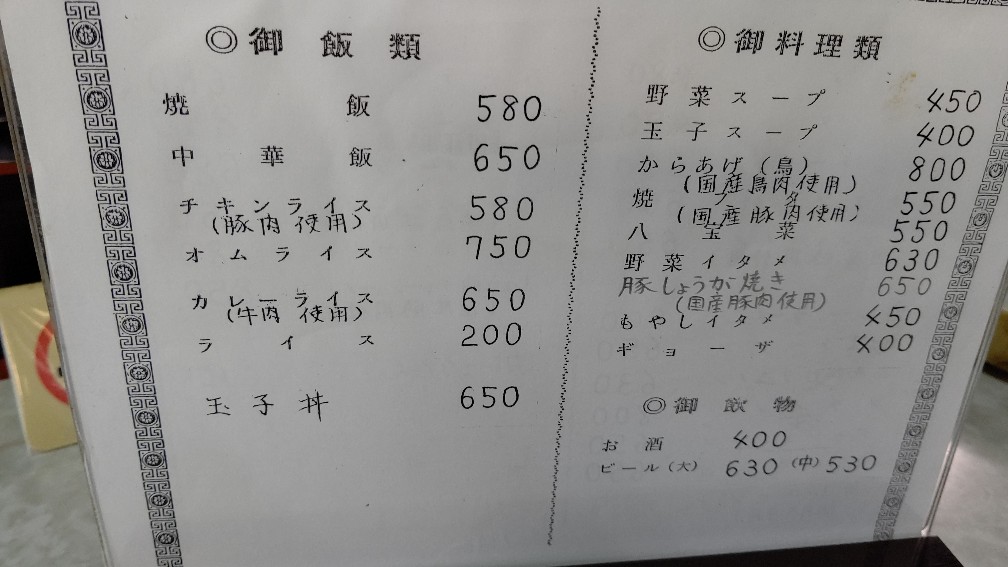 ◎御飯類
焼飯 580
中華飯 650
チキンライス 580
(豚肉使用)
オムライス 750
カレーライス 650
(牛肉使用)
ライス 200
玉子丼 650
◎御料理類
野菜スープ 450
玉子スープ 400
からあげ(鳥) 800
(国産鳥肉使用)
焼ブタ 550
(国産豚肉使用)
八宝菜 550
野菜イタメ 630
豚しょうが焼き 650
(国産豚肉使用)
もやしイタメ 450
ギョーザ 400
◎御飲物
お酒 400
ビール(大) 630 (中) 530